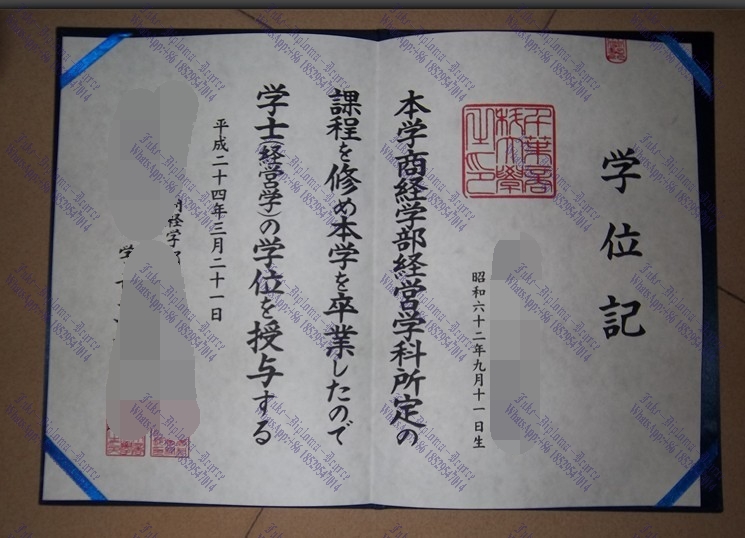 学位記
昭和六十二年九月十一日生
本学商経学部経営学科所定の
課程を修め本学を卒業したので
学士（経営学）の学位を授与する
平成二十四年三月二十一日
経学
学
Fake-Diploma-Degree
WhatsApp:+86 18529547014